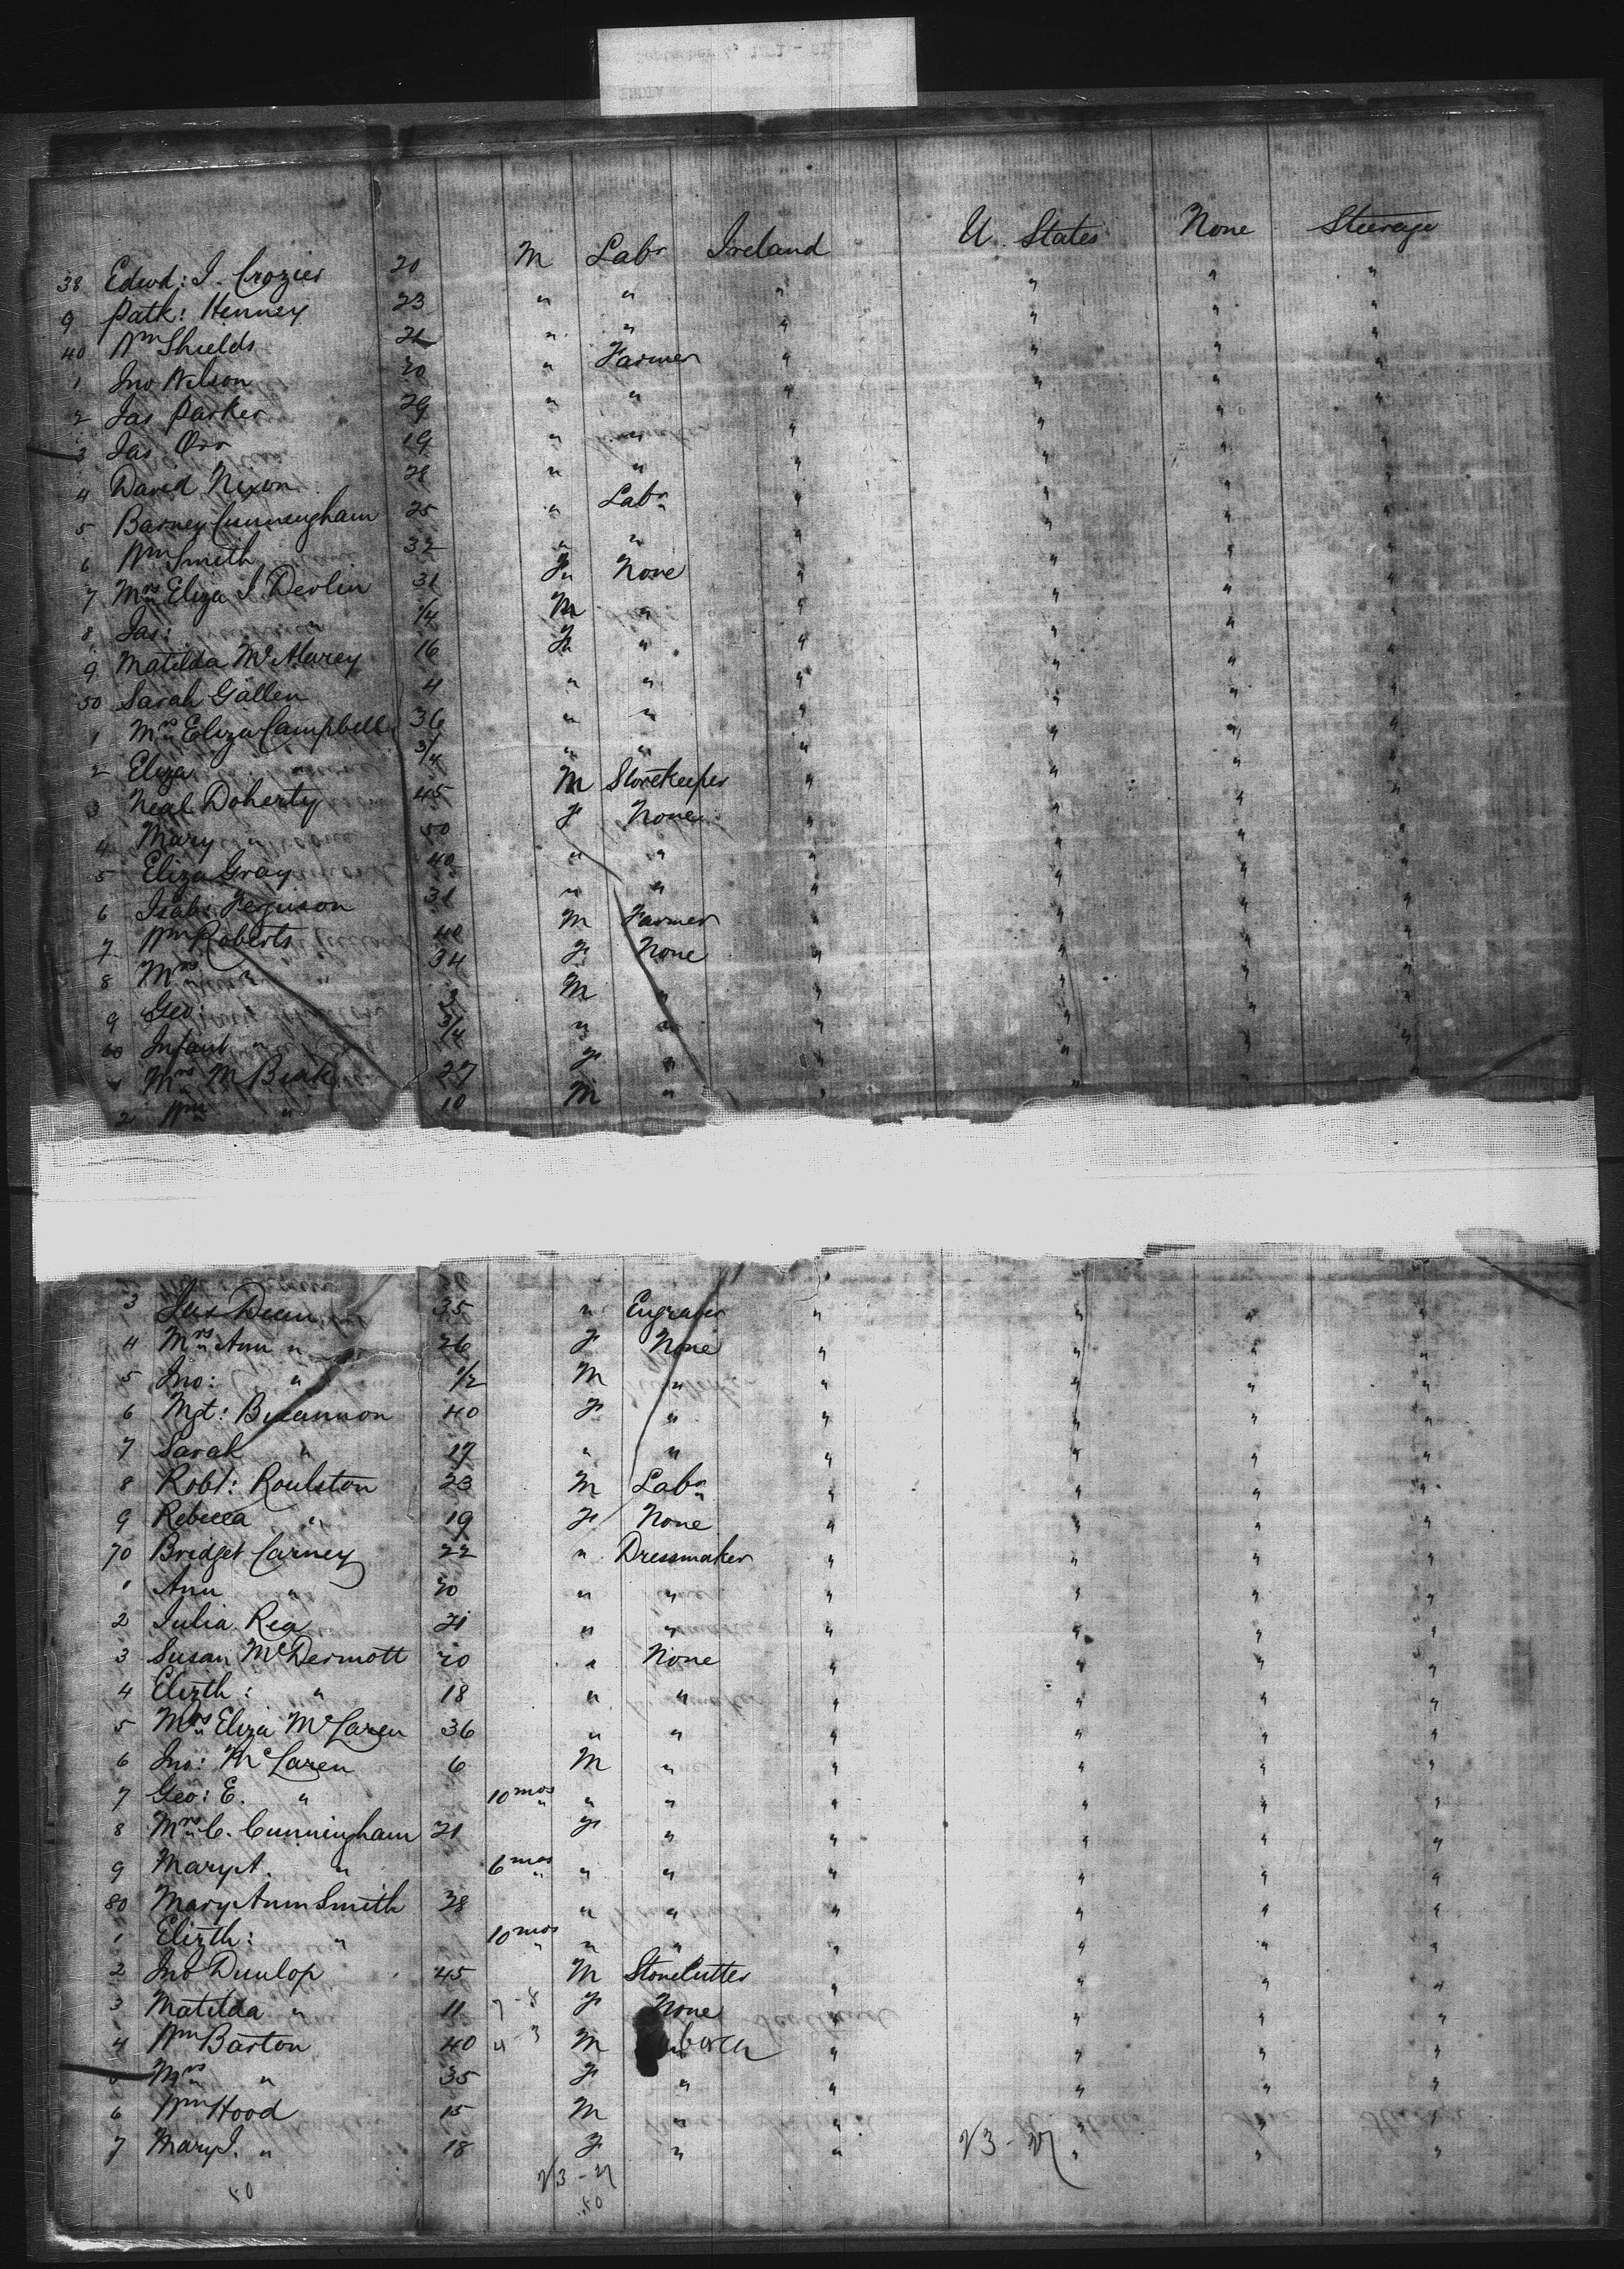 38 Edwd: J. Crozier 20 M Labr Ireland U. States None Steerage
9 Patk: Henney 23 " " " " " "
40 Wm Shields 21 " " " " " "
1 Jno Wilson 20 " Farmer " " " "
2 Jas Parker 29 " " " " " "
3 Jas Orr 19 " " " " " "
4 David Nixon 28 " " " " " "
5 Barney Cunningham 25 " Labr " " " "
6 Wm Smith 32 " " " " " "
7 Mrs Eliza J Devlin 31 F None " " " "
8 Jas: " 1/4 M " " " " "
9 Matilda 16 F " " " " "
50 Sarah Gallen 4 " " " " " "
1 Mrs Eliza Campbell 36 " " " " " "
2 Eliza " 3/4 " " " " " "
3 Neal Doherty 45 M Storekeeper " " " "
4 Mary " 50 F None " " " "
5 Eliza Gray 40 " " " " " "
6 Isab: Ferguson 31 " " " " " "
7 Wm Roberts 40 M Farmer " " " "
8 Mrs " 34 F None " " " "
9 Geo: " 3 M " " " " "
60 Infant " 3/4 " " " " " "
1 Mrs M 27 F " " " " "
2 Wm " 10 M " " "
3 Jas Deen 35 " Engraver " " " "
4 Mrs Ann " 26 F None " " " "
5 Jno: " 1/2 M " " " " "
6 Mgt: 40 F " " " " "
7 Sarah " 17 " " " " " "
8 Robt: Roulston 23 M Labr " " " "
9 Rebecca " 19 F None " " " "
70 Bridget Carney 22 " Dressmaker " " " "
1 Ann " 20 " " " " " "
2 Julia Rea 21 " " " " " "
3 Susan McDermott 20 " None " " " "
4 Elizth: " 18 " " " " " "
5 Mrs Eliza McLaren 36 " " " " " "
6 Jno: McLaren 6 M " " " " "
7 Geo: E. " 10 mos " " " " " "
8 Mrs C. Cunningham 21 F " " " " "
9 Mary A. " 6 mos " " " " " "
80 Mary Ann Smith 38 " " " " " "
1 Elizth: " 10 mos " " " " " "
2 Jno Dunlop 45 M StoneCutter " " " "
3 Matilda " 11 7-8 F None " " " "
4 Wm Barton 40 4-3 M " " " "
Mrs " 35 F " " " " "
6 Wm Hood 15 M " " " "
7 Mary J. " 18 F " " 23-27 " " "
50 23-27
50